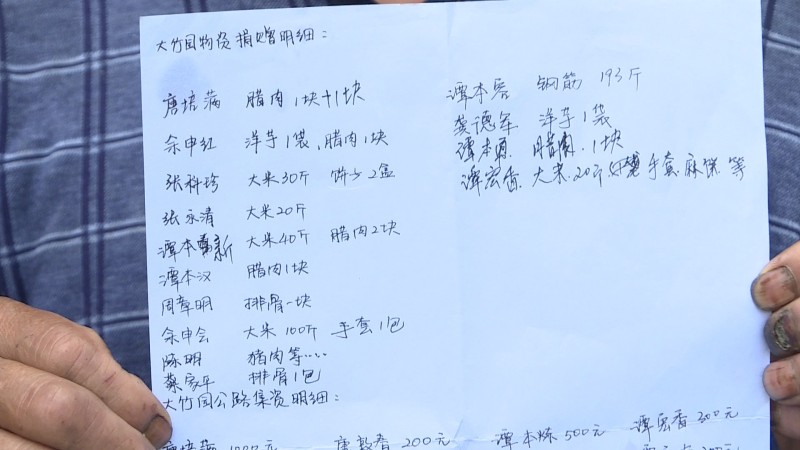 大竹园物资捐赠明细：
唐培满 腊肉1块+1块
余申红 洋芋1袋、腊肉1块
张科珍 大米30斤 饼干2盒
张永清 大米20斤
谭本新 大米40斤 腊肉2块
谭本汉 腊肉1块
周章明 排骨一块
余申会 大米100斤 手套1包
陈明 猪肉等....
蔡家平 排骨1包
谭本容 钢筋 193斤
龚德军 洋芋1袋
谭本 腊肉 1块
谭宏香 大米20斤 手套 麻 等
大竹园公路集资明细：
唐培满 1000元 唐 香 200元 谭本炼 500元 谭宏香 300元